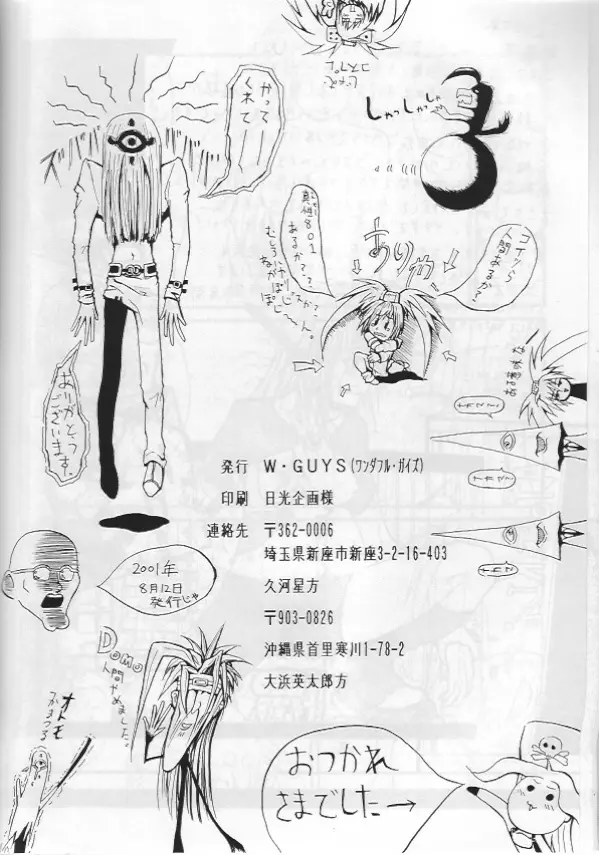 じゃどう
コスプレ
しゃっしゃっしゃ
かって
くれて
ー
コイツら
人間あるか?
ありゃ
真性801
あるか??
むしろけりじゃねが?
ながぽ
ぽじ〜ん。
ありがとう
ございます。
発行 W・GUYS(ワンダフル・ガイズ)
印刷 日光企画様
連絡先 〒362-0006
埼玉県新座市新座3-2-16-403
久河星方
〒903-0826
沖縄県首里寒川1-78-2
大浜英太郎方
2001年
8月12日
発行じゃ
Domo
人間やめました。
オトモ
つかまつる
おつかれ
さまでした→